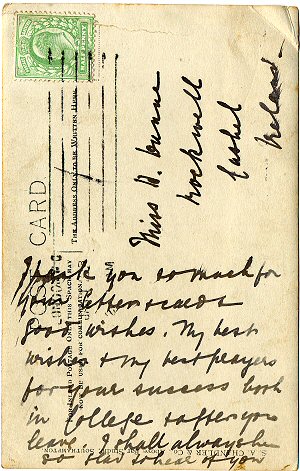 Miss A. Dunne
Rockwell
Cashel
Ireland
POST CARD
THE ADDRESS ONLY TO BE WRITTEN HERE
I thank you so much for
your letter & cards
good wishes. My best
wishes & my best prayers
for your success both
in College & after you
leave. I shall always be
so glad to hear of you
S. A. CHANDLER & CO.
SOUTHAMPTON